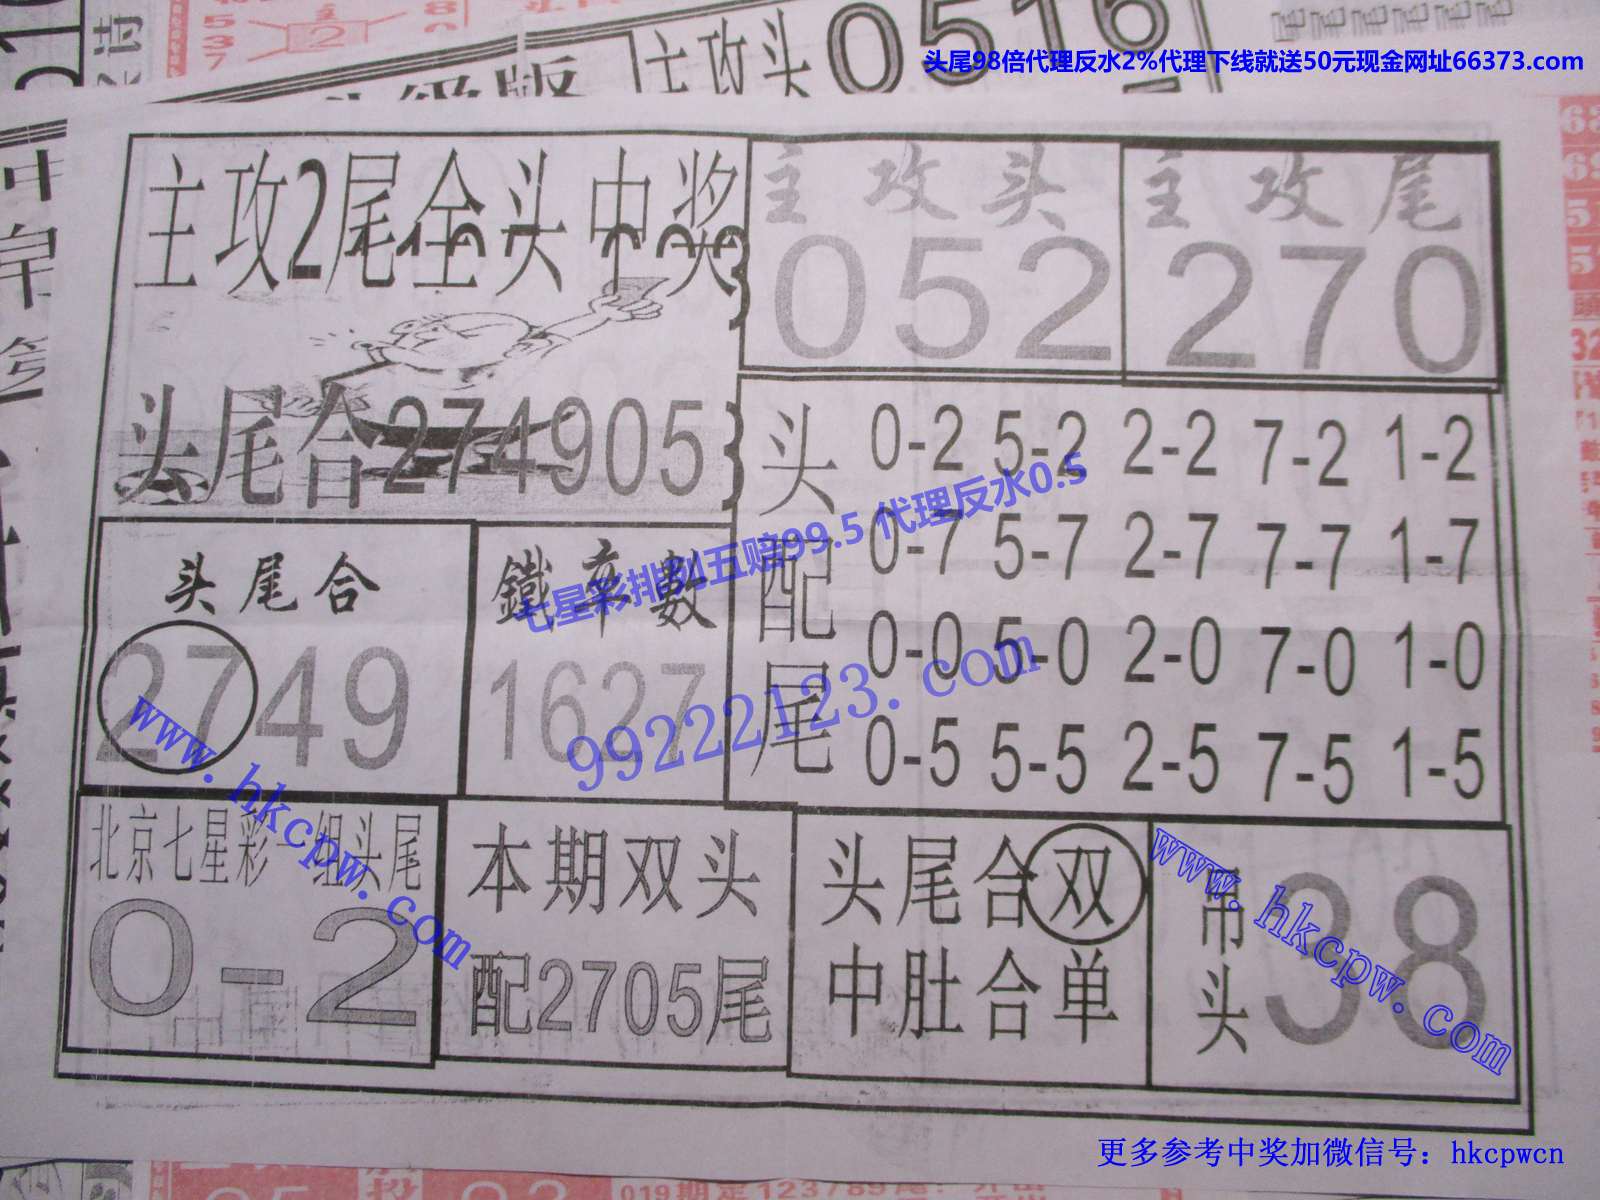 主攻头
0516
头尾98倍代理反水2%代理下线就送50元现金网址66373.com
主攻2尾全头中奖
头尾合274905
主攻头
052
主攻尾
270
头配尾
0-2 5-2 2-2 7-2 1-2
0-7 5-7 2-7 7-7 1-7
0-0 5-0 2-0 7-0 1-0
0-5 5-5 2-5 7-5 1-5
七星彩排列五赔99.5 代理反水0.5
99222123.com
头尾合
2749
鐵率數
1627
www.hkcpw.com
北京七星彩一组头尾
0-2
本期双头
配2705尾
头尾合双
中肚合单
吊头
38
www.hkcpw.com
更多参考中奖加微信号：hkcpwcn